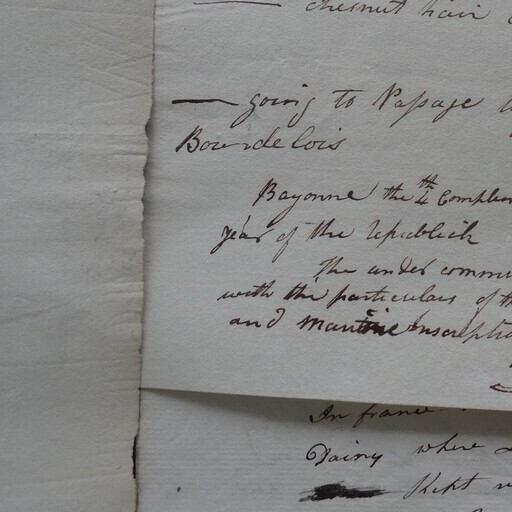 chesnut hair
— going to Passage
Bourdelois
Bayonne the 4th Complem
year of the republick
the under commi
with the particulars of th
and maritime Inscriptio
In france
Dainy where
Kept